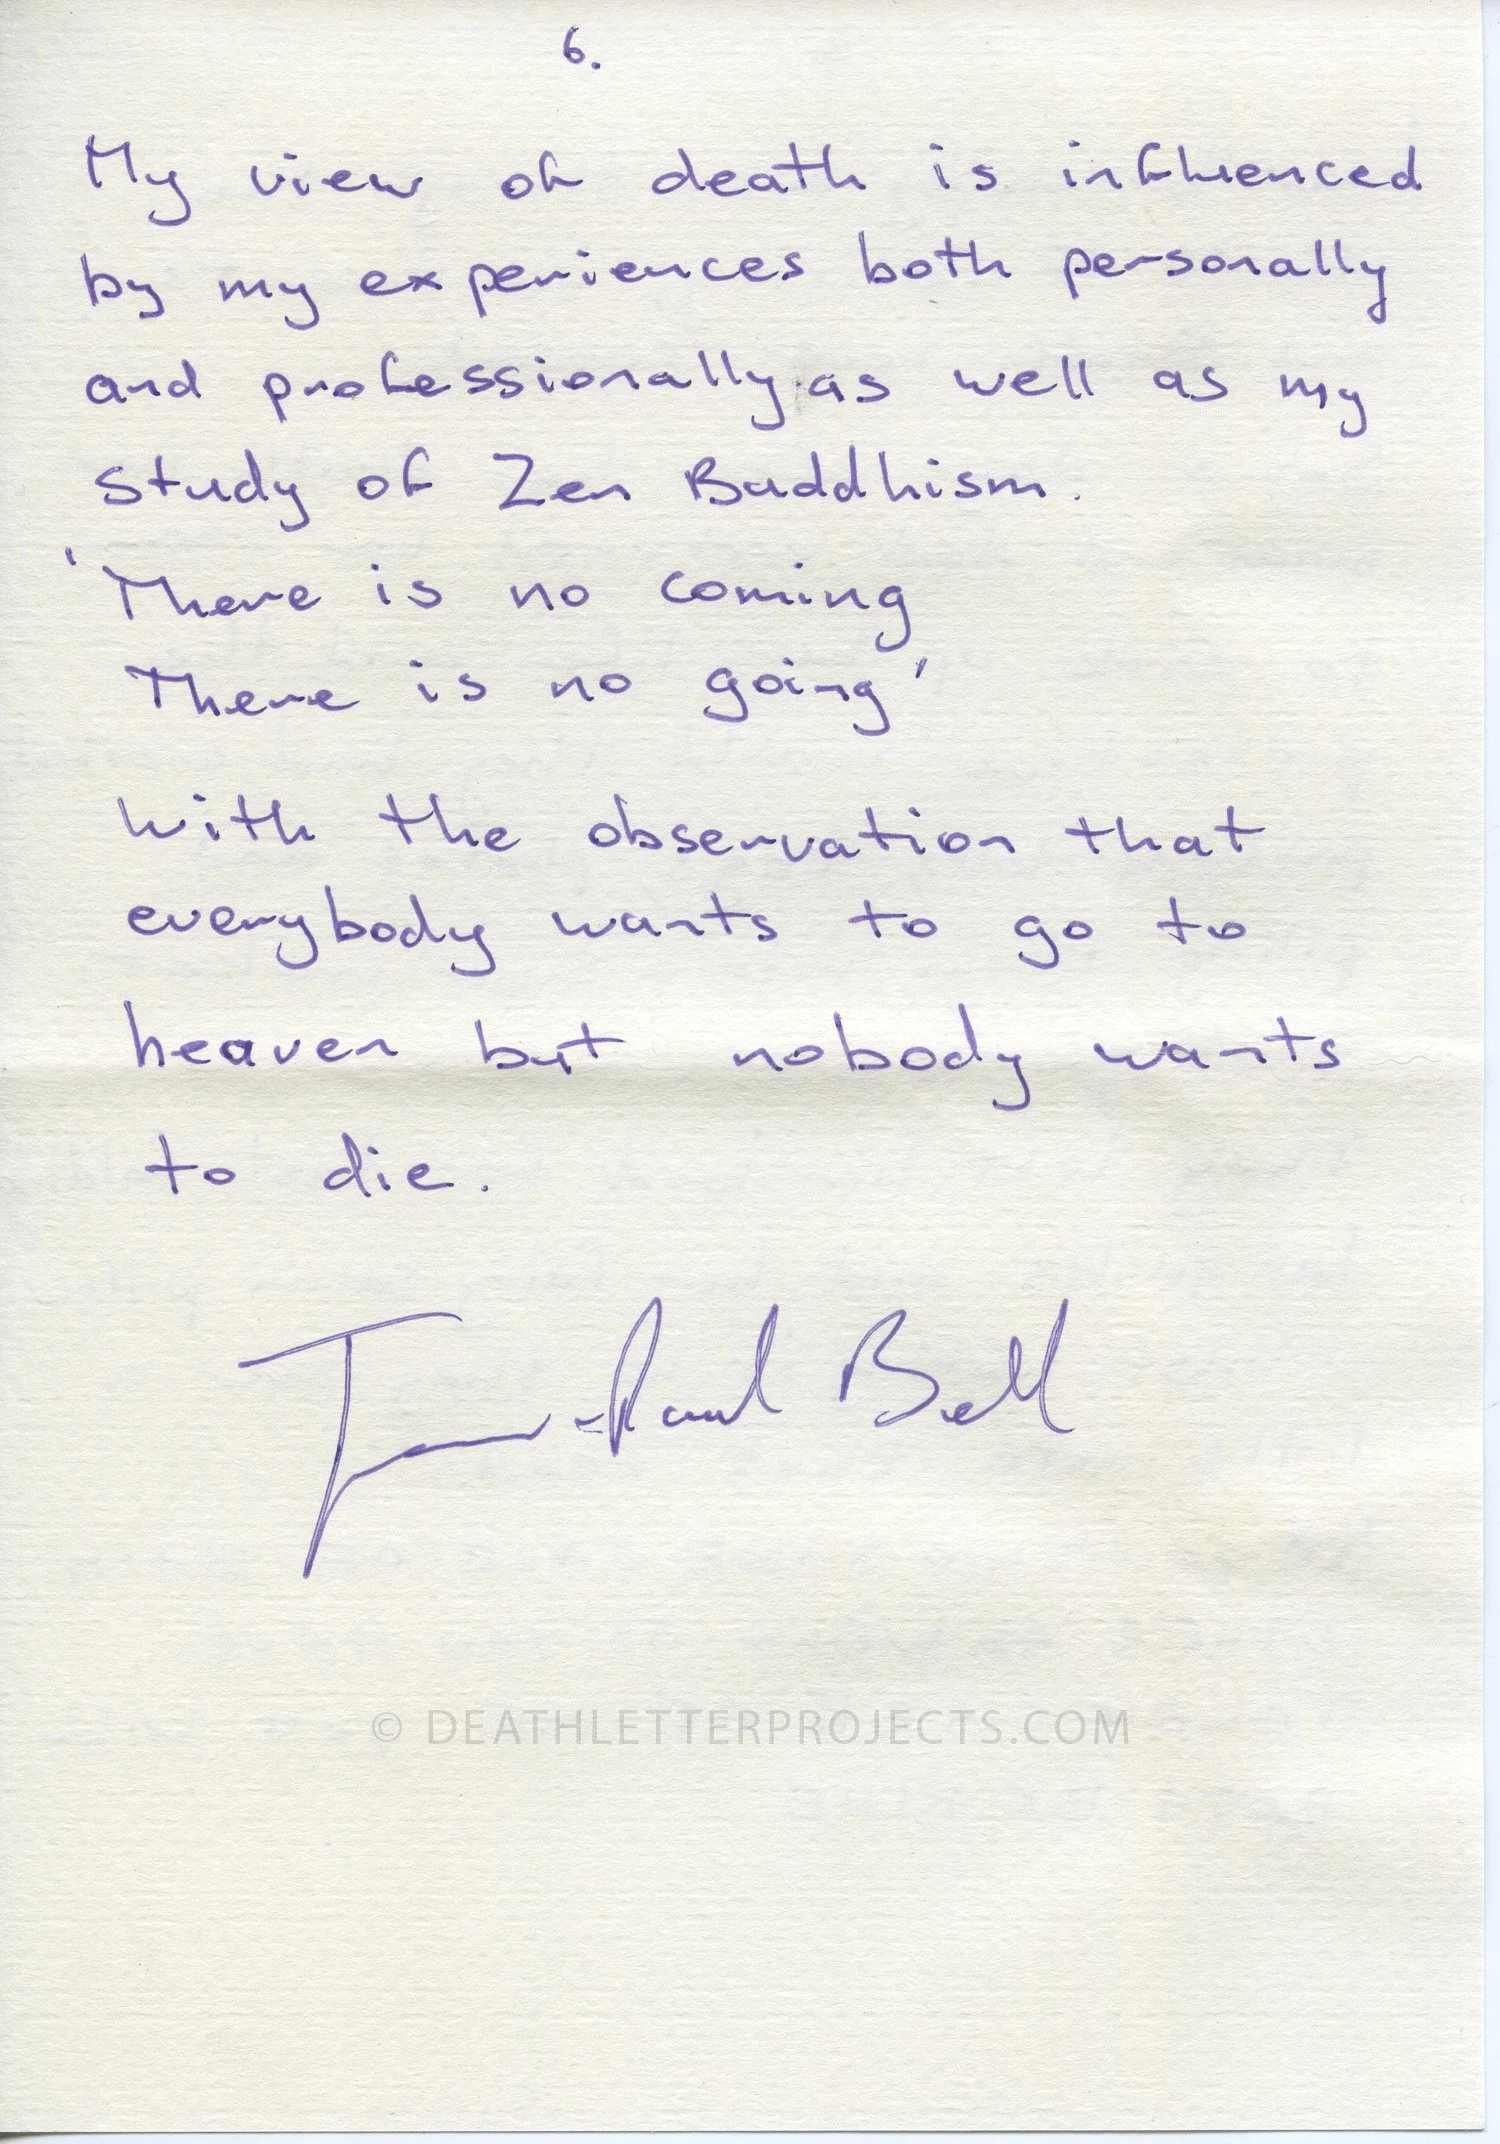 6.
My view of death is influenced
by my experiences both personally
and professionally as well as my
study of Zen Buddhism.
'There is no coming
There is no going'
With the observation that
everybody wants to go to
heaven but nobody wants
to die.
-Paul Bell
© DEATHLETTERPROJECTS.COM